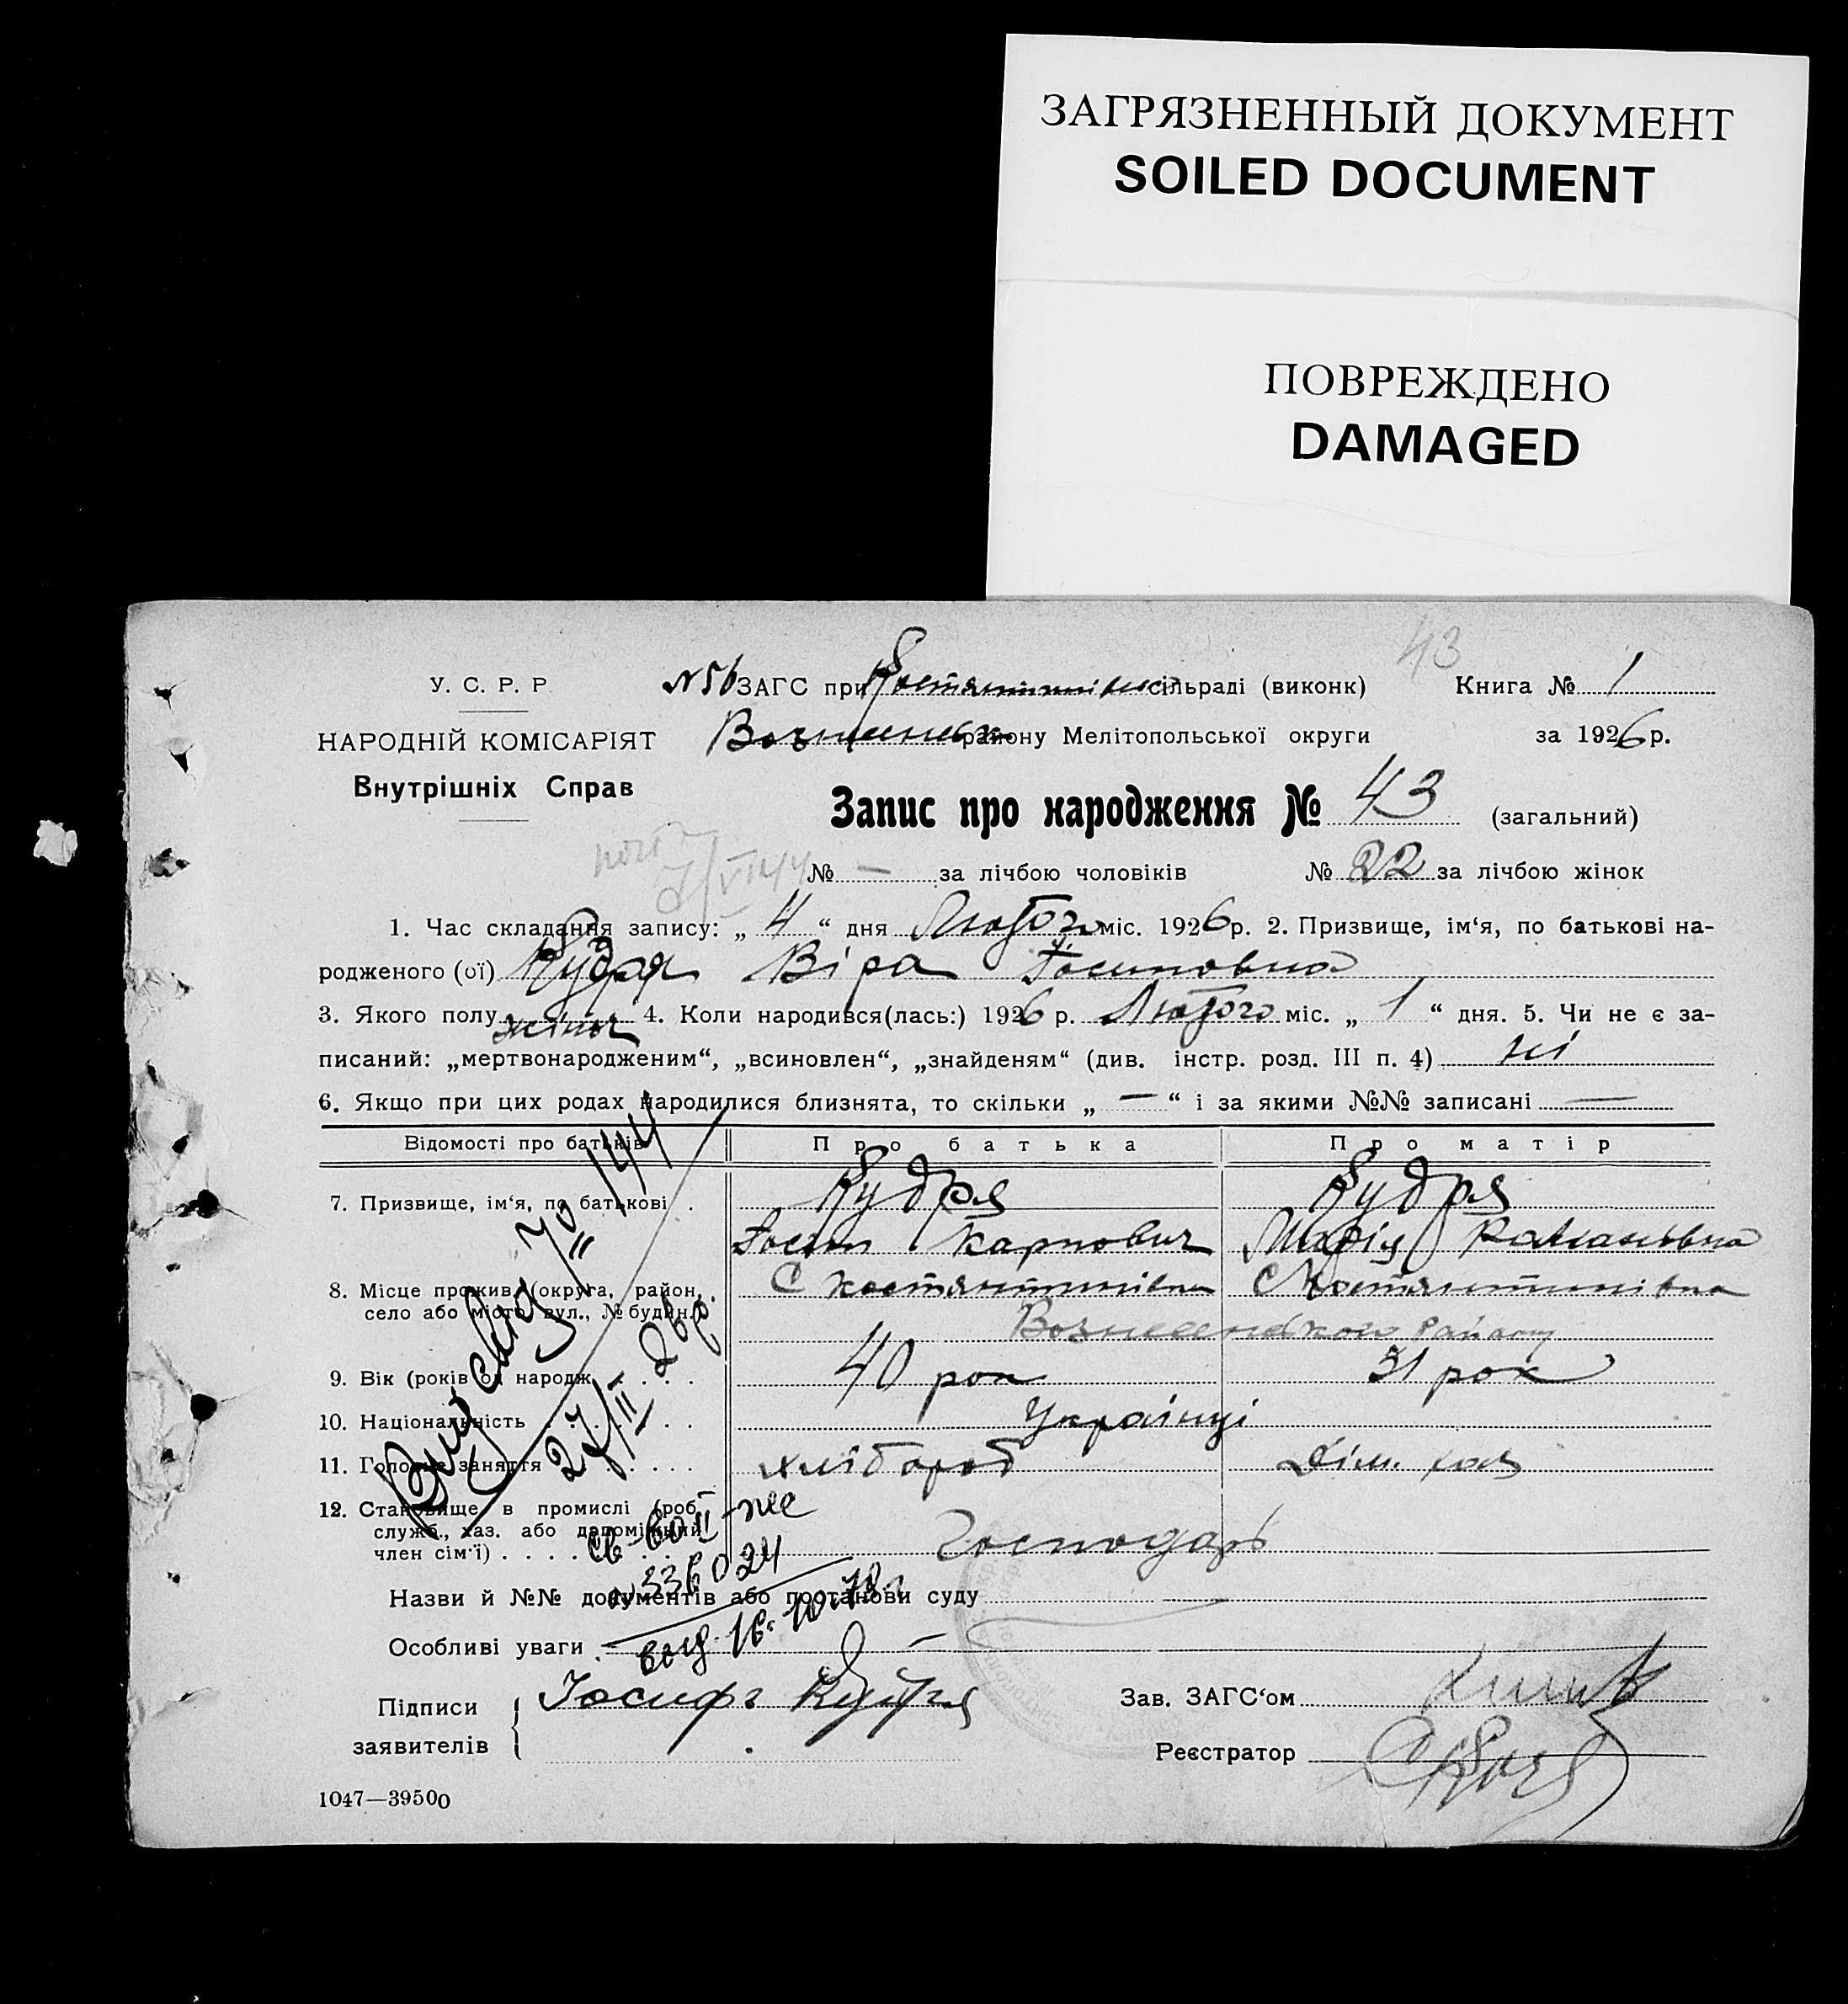 ЗАГРЯЗНЕННЫЙ ДОКУМЕНТ
SOILED DOCUMENT
ПОВРЕЖДЕНО
DAMAGED
43
У. С. Р. Р. №56 ЗАГС при Костянтинівк сільраді (виконк) Книга № 1
НАРОДНІЙ КОМІСАРІЯТ Вознесенськ району Мелітопольської округи за 1926 р.
Внутрішніх Справ
Запис про народження № 43 (загальний)
№ — за лічбою чоловіків № 22 за лічбою жінок
1. Час складання запису: „ 4 “ дня Лютого міс. 1926 р. 2. Призвище, ім‘я, по батькові на-
родженого (ої) Кудря Віра Йосиповна
3. Якого полу жіноч 4. Коли народився(лась:) 1926 р. Лютого міс. „ 1 “ дня. 5. Чи не є за-
писаний: „мертвонародженим“, „всиновлен“, „знайденям“ (див. інстр. розд. III п. 4) ні
6. Якщо при цих родах народилися близнята, то скільки „ — “ і за якими №№ записані —
Відомості про батьків Про батька Про матір
7. Призвище, ім‘я, по батькові . Кудря Кудря
Йосип Карпович Марія Романовна
8. Місце прожив. (округа, район, С Костянтинівка С Костянтинівка
село або місто, вул., № будин.) Вознесенського Району
9. Вік (років од народж. 40 рок 31 рок
10. Національність Українці
11. Головне заняття хлібороб Дім. хаз
12. Становище в промислі (роб.
служб., хаз. або допоміжний
член сім‘ї) Господарь
Назви й №№ документів або постанови суду
Особливі уваги
Підписи Іосифъ Кудря Зав. ЗАГС‘ом
заявителів Реєстратор
1047—39500
144
27/II
св-во II-же
№336024
выд. 16.10.78г